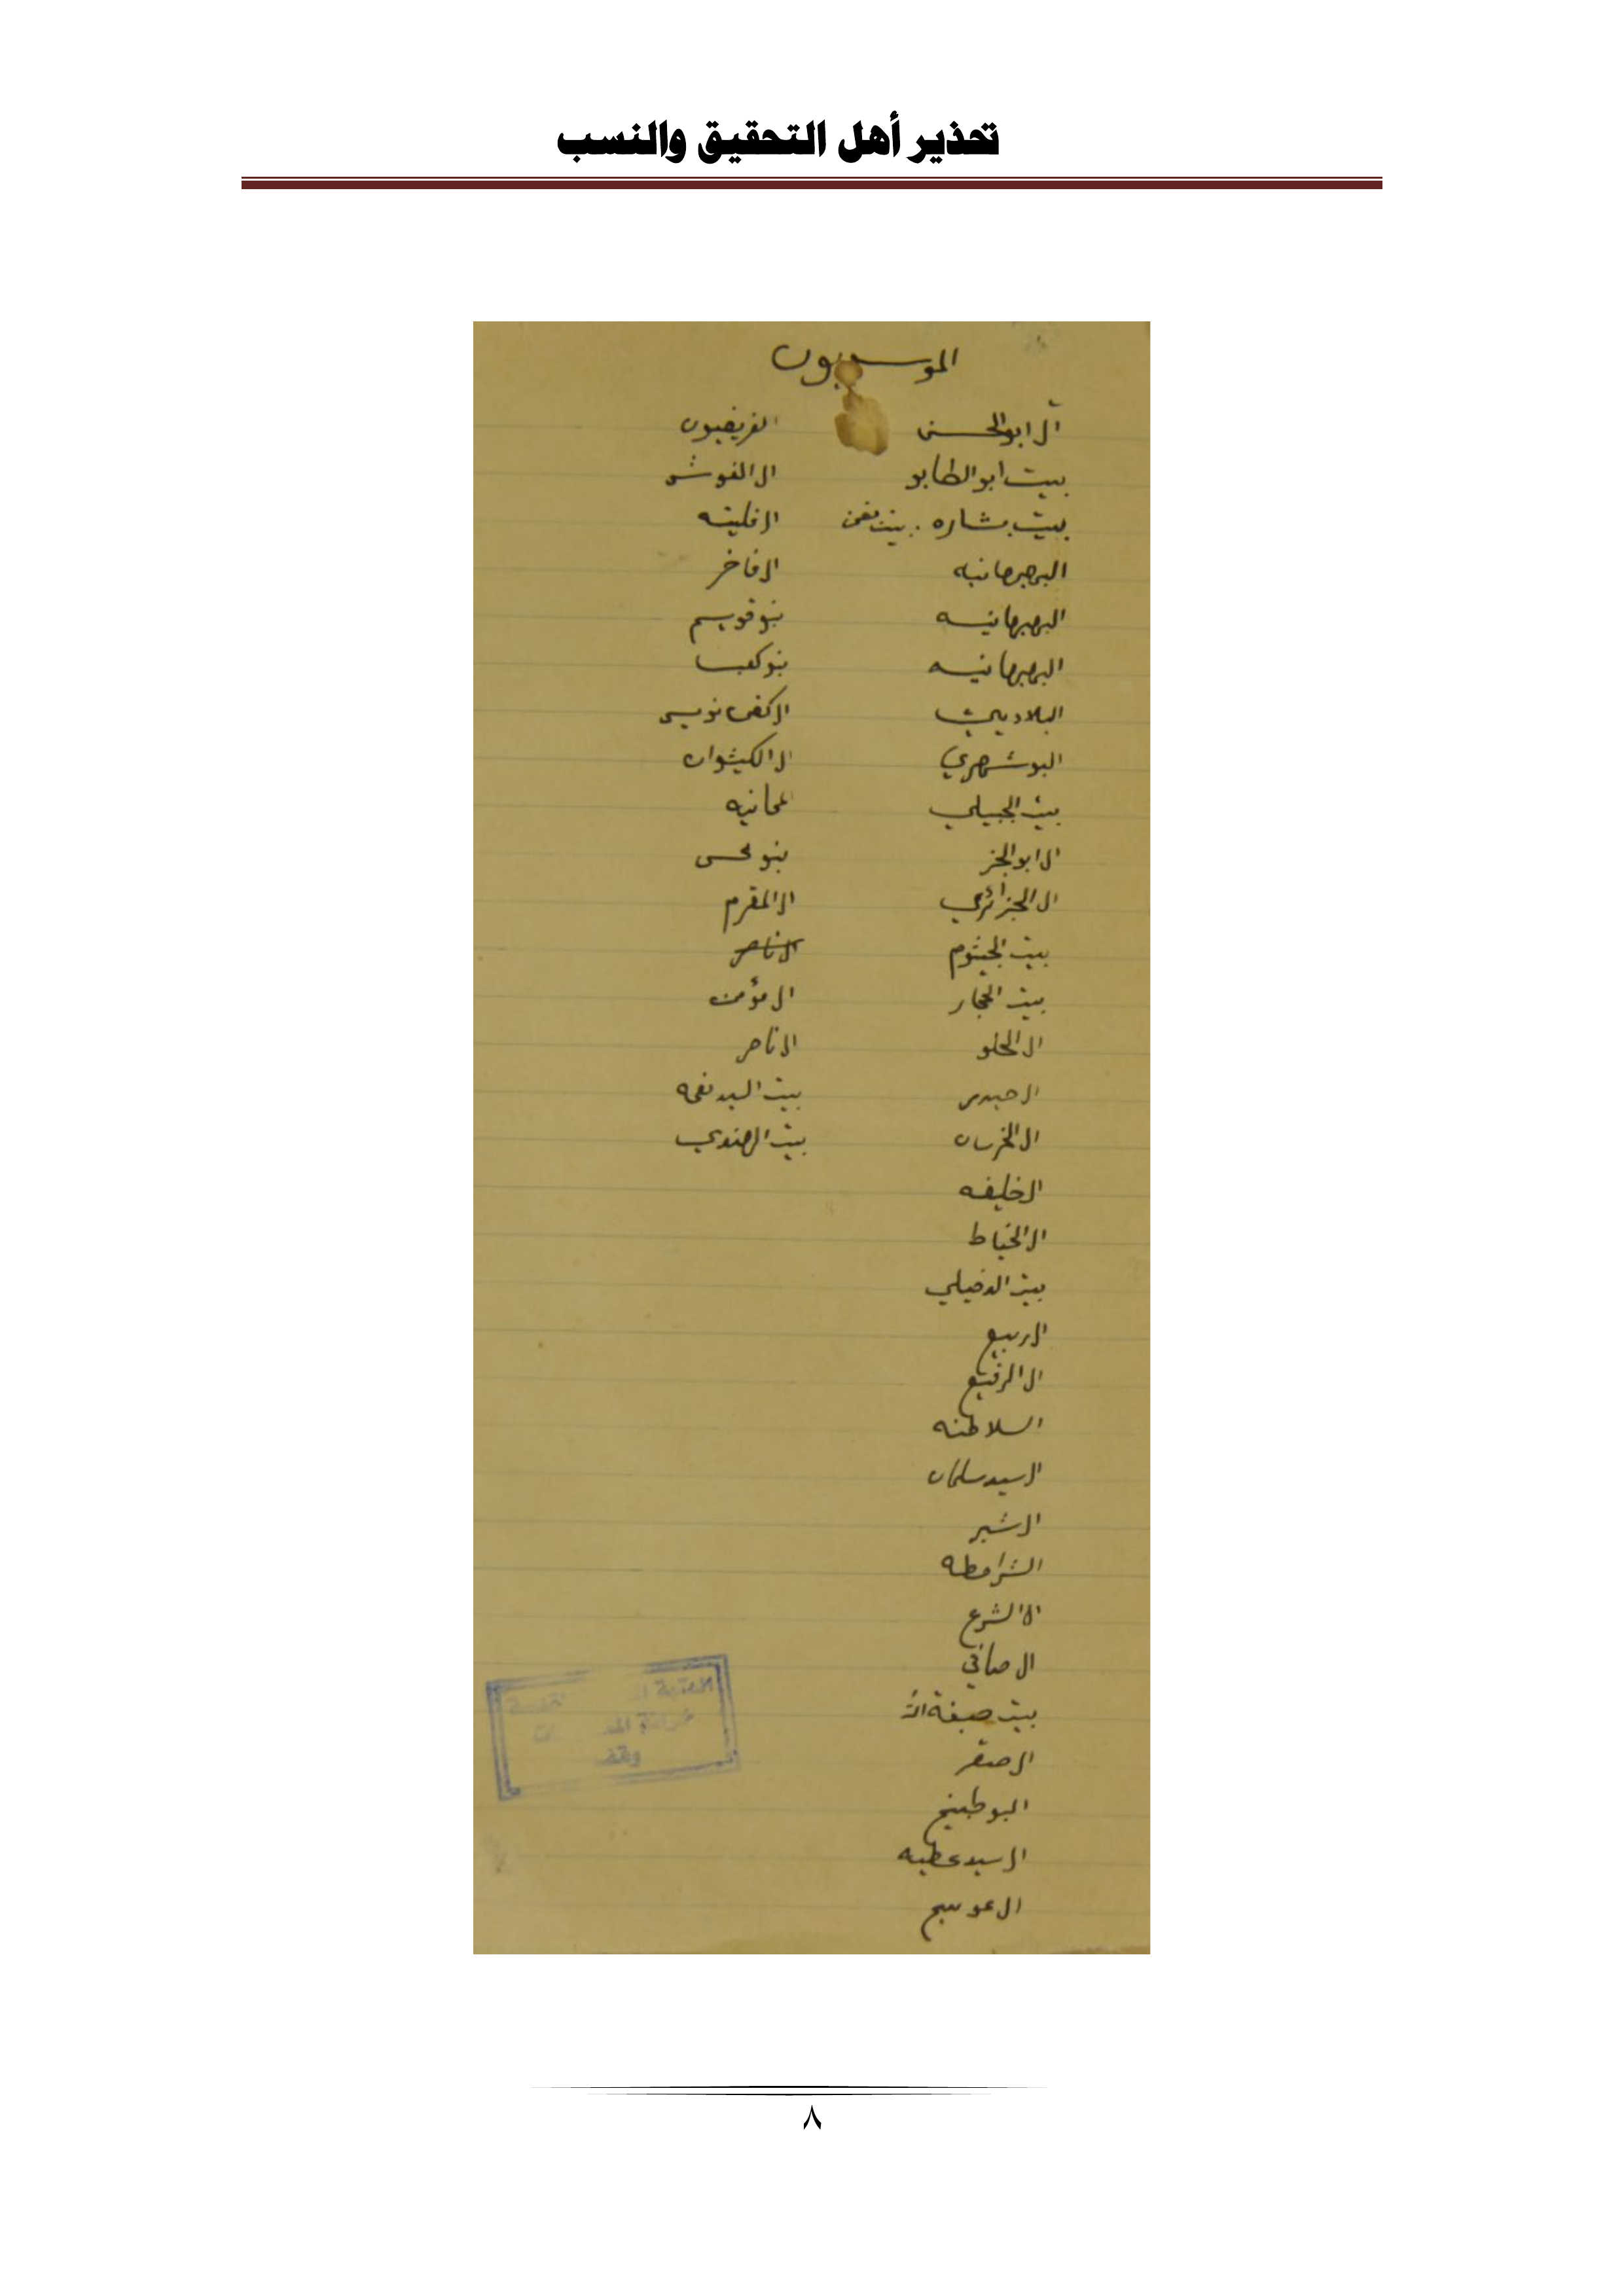 تحذير أهل التحقيق والنسب
الموسويون
آل ابو الحسن
بيت ابو الطابو
بيت بشاره
البرهبرهانيه
البرهبرهانيه
البلاديي
البوشهري
بيت الجبيلي
ال ابو الجز
ال الجزائري
بيت الجيثوم
بيت الحجار
ال الحلو
ال حيدر
ال الخرسان
ال خليفه
ال الخياط
بيت الدخيلي
ال ربيع
ال الرفيع
السلاطنه
ال سيد سلمان
ال شبر
الشرامطه
ال الشرع
ال صافي
بيت صبغة الله
ال صقر
البو طبيخ
ال سيد عطيه
ال عوسج
الغريفيون
ال الفوشر
ال فليته
ال فاخر
بنو قويسم
بنو كعب
ال كفش نويس
ال الكيشوان
المحانيه
بنو محسن
ال المقرم
ال ناصر
ال مؤمن
ال ناصر
بيت السيد نعمه
بيت الهندي
وقف
٨